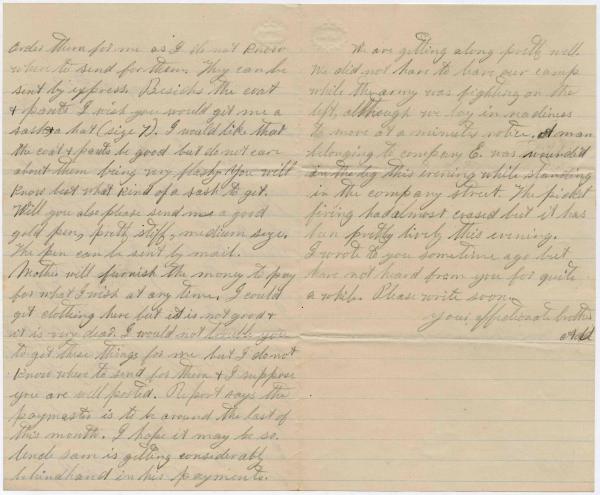 order them for me as I do not know
where to send for them. They can be
sent by express. Besides the coat
& pants I wish you would get me a
sash & a hat (size 7). I would like that
the coat & pants be good but do not care
about them being very flashy. You will
know best what kind of a sash to get.
Will you also please send me a good
gold pen, pretty stiff, medium size.
The pen can be sent by mail.
Mother will furnish the money to pay
for what I wish at any time. I could
get clothing here but it is not good &
it is very dear. I would not trouble you
to get these things for me but I do not
know where to send for them & I suppose
you are well posted. Report says the
paymaster is to be around the last of
this month. I hope it may be so.
Uncle Sam is getting considerably
behindhand in his payments.
We are getting along pretty well.
We did not have to leave our camp
while the army was fighting on the
left, although we lay in readiness
to move at a minutes notice. A man
belonging to company E. was wounded
in the leg this evening while standing
in the company street. The picket
firing had almost ceased but it has
been pretty lively this evening.
I wrote to you sometime ago but
have not heard from you for quite
a while. Please write soon.
Your affectionate brother